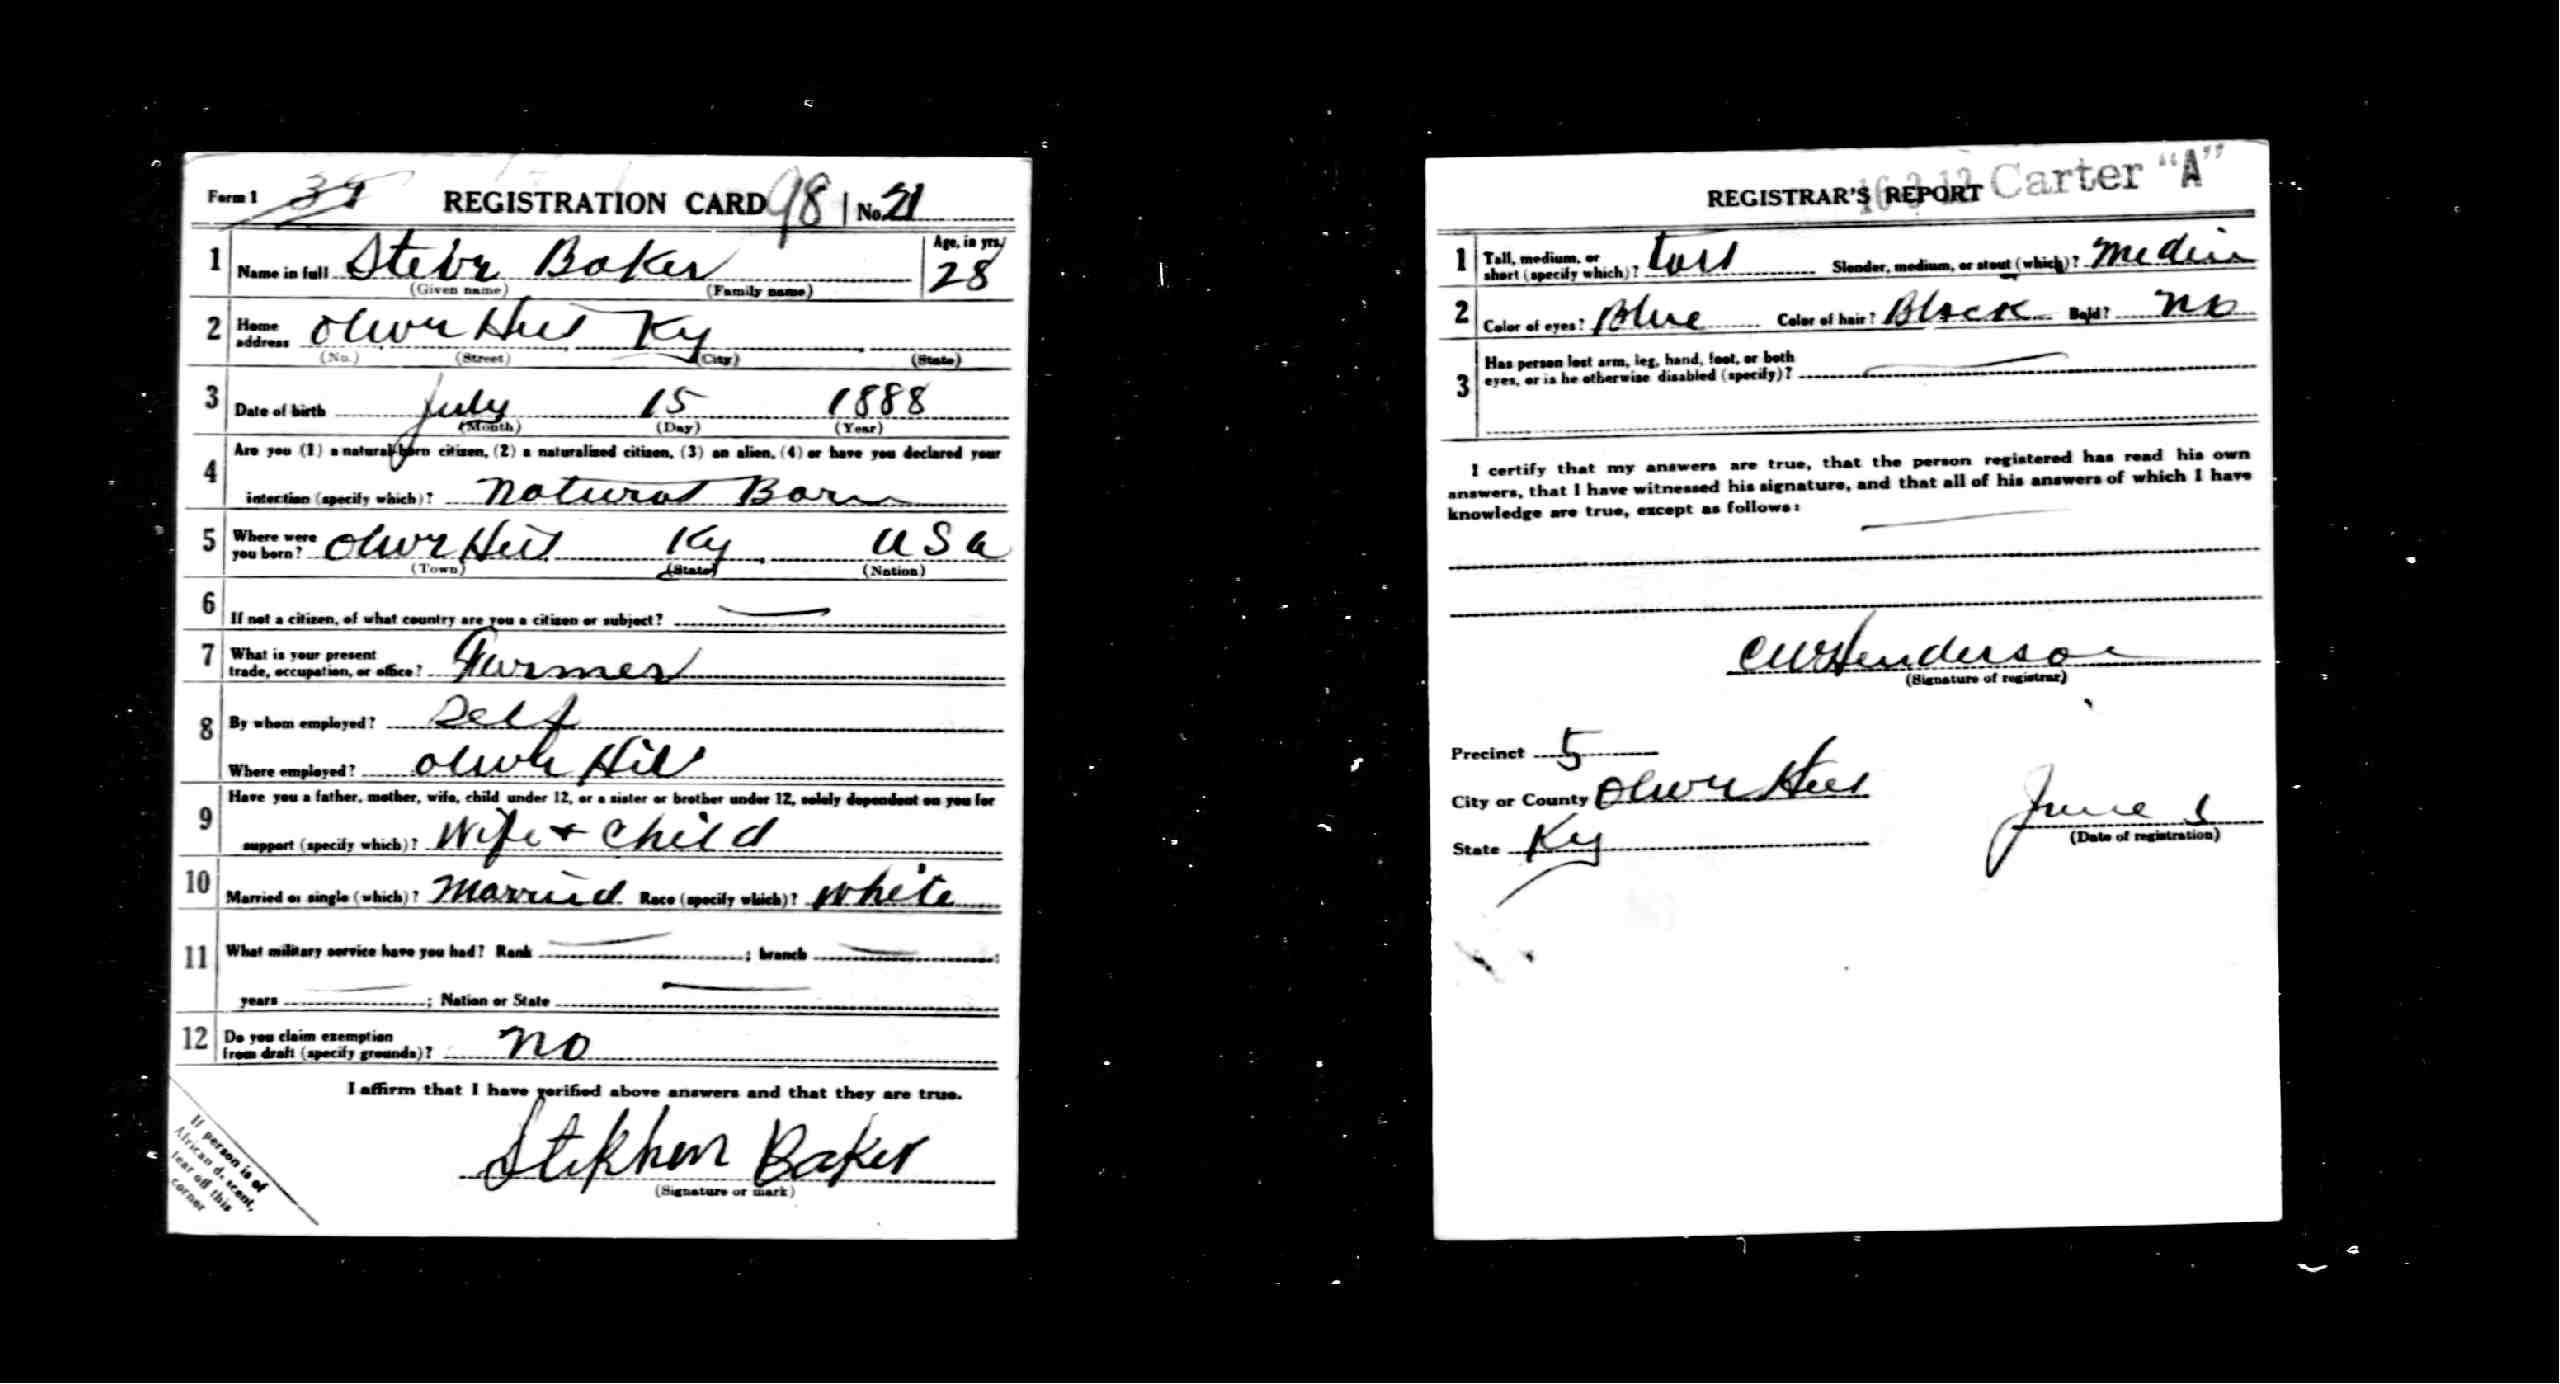 Form 1 39 REGISTRATION CARD 98 No. 21
1 Name in full Steve Baker Age, in yrs. 28
(Given name) (Family name)
2 Home address Olive Hill Ky
(No.) (Street) (City) (State)
3 Date of birth July 15 1888
(Month) (Day) (Year)
4 Are you (1) a natural-born citizen, (2) a naturalized citizen, (3) an alien, (4) or have you declared your
intention (specify which)? Natural Born
5 Where were you born? Olive Hill Ky USA
(Town) (State) (Nation)
6 If not a citizen, of what country are you a citizen or subject?
7 What is your present
trade, occupation, or office? Farmer
8 By whom employed? Self
Where employed? Olive Hill
9 Have you a father, mother, wife, child under 12, or a sister or brother under 12, solely dependent on you for
support (specify which)? Wife + Child
10 Married or single (which)? Married Race (specify which)? White
11 What military service have you had? Rank ; branch ;
years ; Nation or State
12 Do you claim exemption
from draft (specify grounds)? No
I affirm that I have verified above answers and that they are true.
Stephen Baker
(Signature or mark)
If person is of
African descent,
tear off this
corner
REGISTRAR'S REPORT 16-3-12 Carter "A"
1 Tall, medium, or
short (specify which)? tall Slender, medium, or stout (which)? Medium
2 Color of eyes? Blue Color of hair? Black Bald? No
3 Has person lost arm, leg, hand, foot, or both
eyes, or is he otherwise disabled (specify)?
I certify that my answers are true, that the person registered has read his own
answers, that I have witnessed his signature, and that all of his answers of which I have
knowledge are true, except as follows:
CW Henderson
(Signature of registrar)
Precinct 5
City or County Olive Hill
State Ky
June 5
(Date of registration)